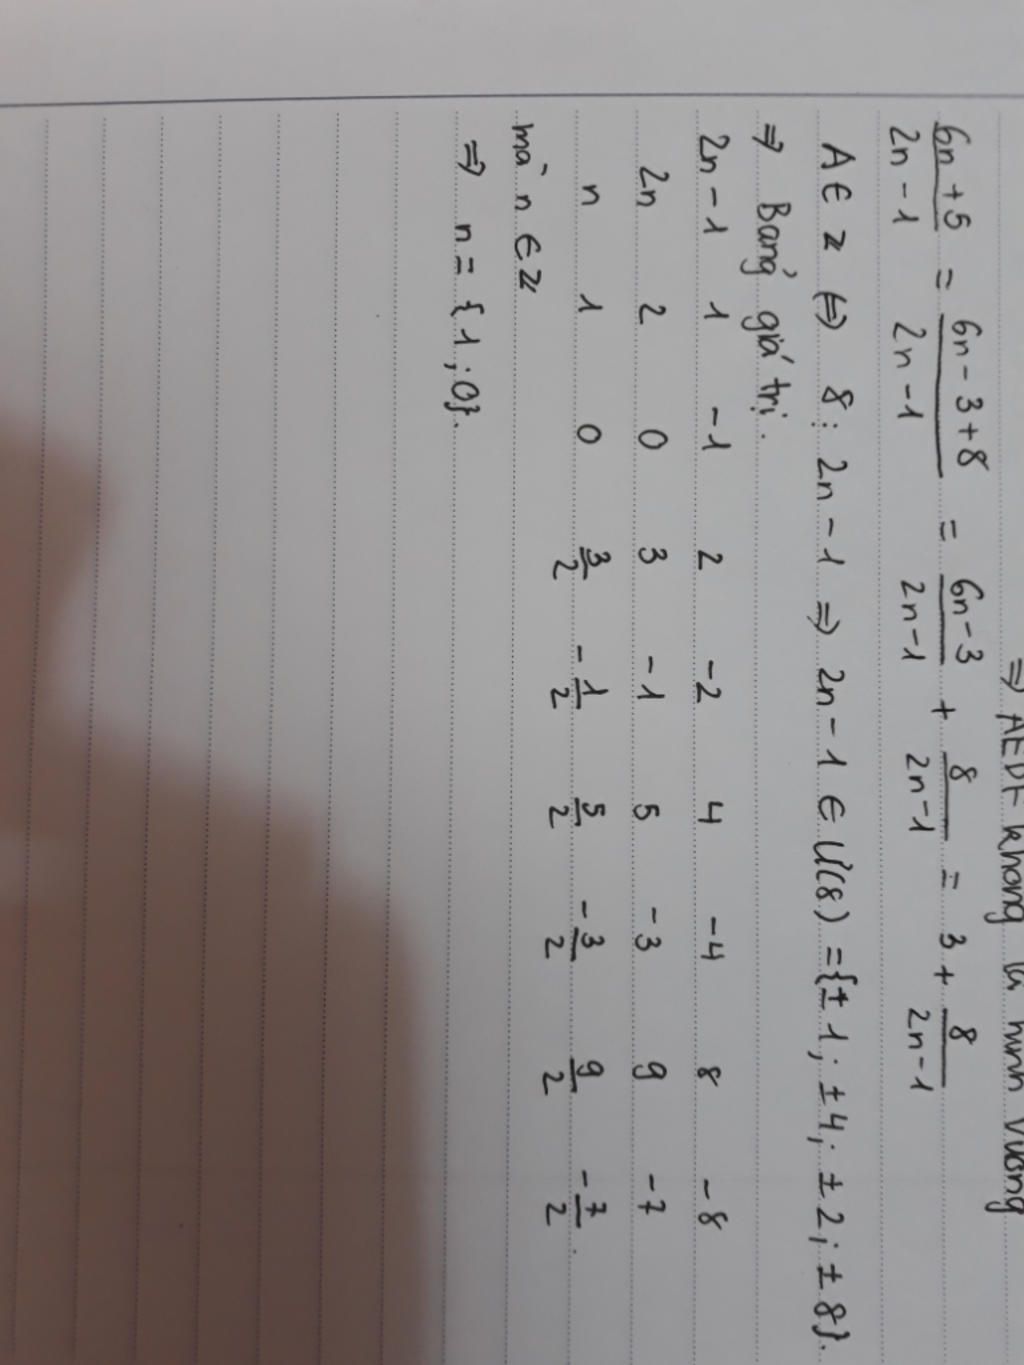 ⇒ AEDF không là hình vuông
6n+5/2n-1 = 6n-3+8/2n-1 = 6n-3/2n-1 + 8/2n-1 = 3 + 8/2n-1
A ∈ Z ⇔ 8 ⋮ 2n-1 ⇒ 2n-1 ∈ Ư(8) = {±1; ±4; ±2; ±8}.
⇒ Bảng giá trị.
2n-1 1 -1 2 -2 4 -4 8 -8
2n 2 0 3 -1 5 -3 9 -7
n 1 0 3/2 -1/2 5/2 -3/2 9/2 -7/2.
mà n ∈ Z
⇒ n = {1; 0}.